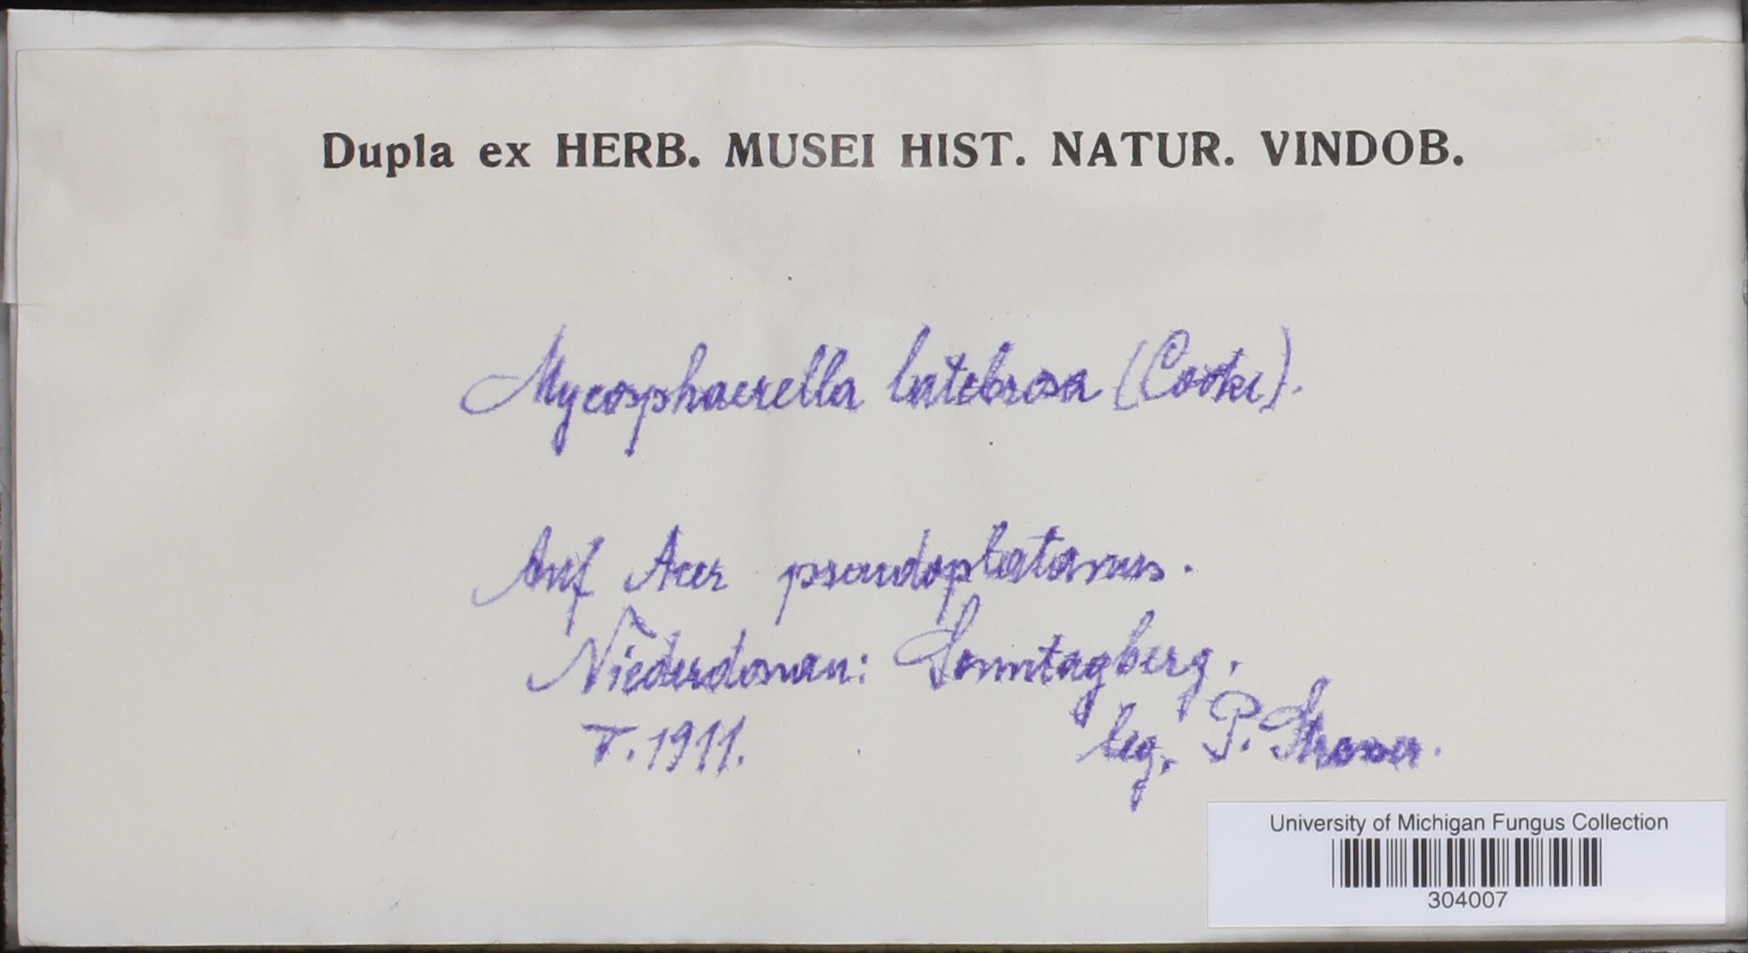 Dupla ex HERB. MUSEI HIST. NATUR. VINDOB.
Mycosphaerella latebrosa (Cooke).
Auf Acer pseudoplatanus.
Niederdonau: Sonntagberg.
V. 1911.
leg. P. Strasser.
University of Michigan Fungus Collection
304007